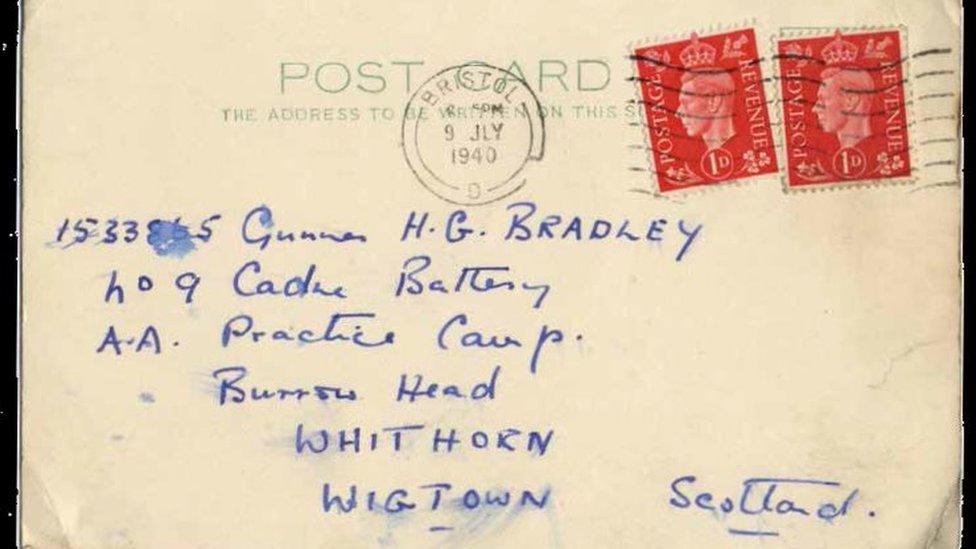 POST CARD
THE ADDRESS TO BE WRITTEN ON THIS
BRISTOL
PM
9 JLY
1940
POSTAGE REVENUE
1D
POSTAGE REVENUE
1D
Gunner H.G. BRADLEY
No 9 Cadre Battery
A.A. Practice Camp.
Burrow Head
WHITHORN
WIGTOWN Scotland.